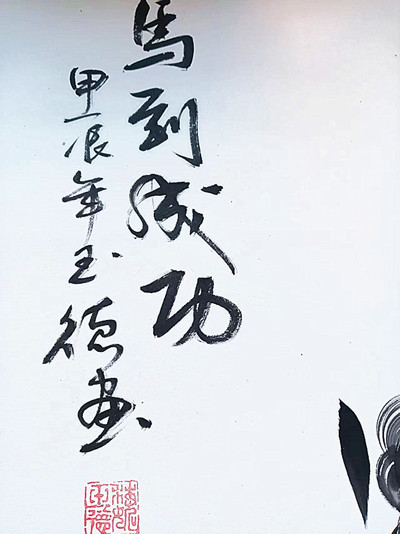 馬到成功
甲辰年玉德画